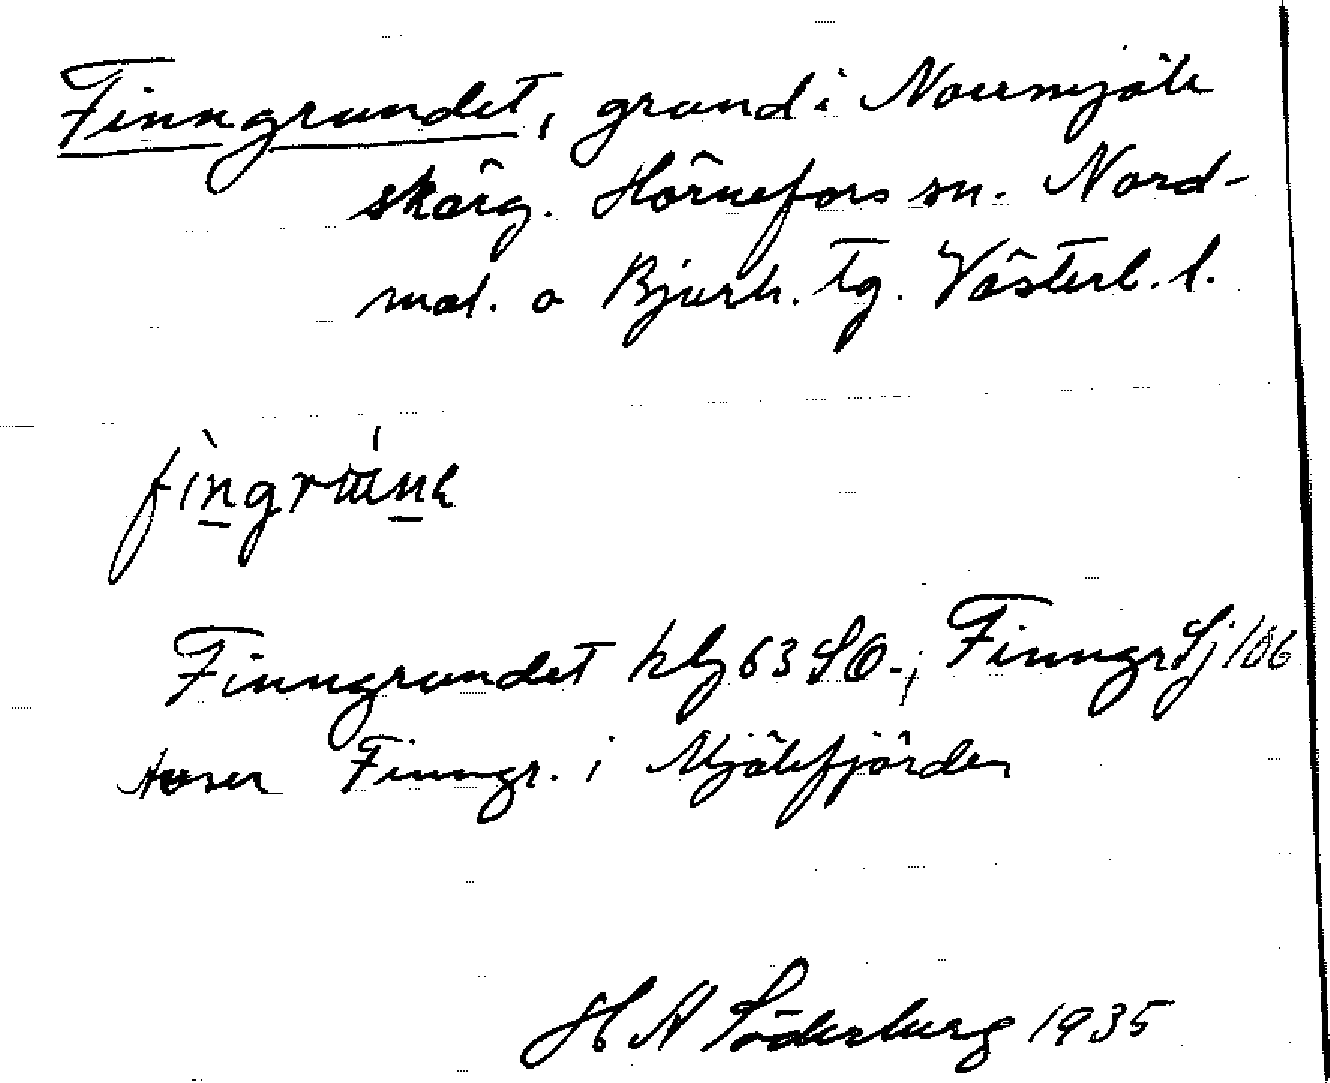 Finngrundet, grund i Norrmjöle
skärg. Hörnefors sn. Nord-
mal. o Bjurh. tg. Västerb. l.
fìngrɯ́nk
Finngrundet kbg 63 SO.; Finngr Sj 106
Finngr. i Mjölefjärden
H A Söderberg 1935